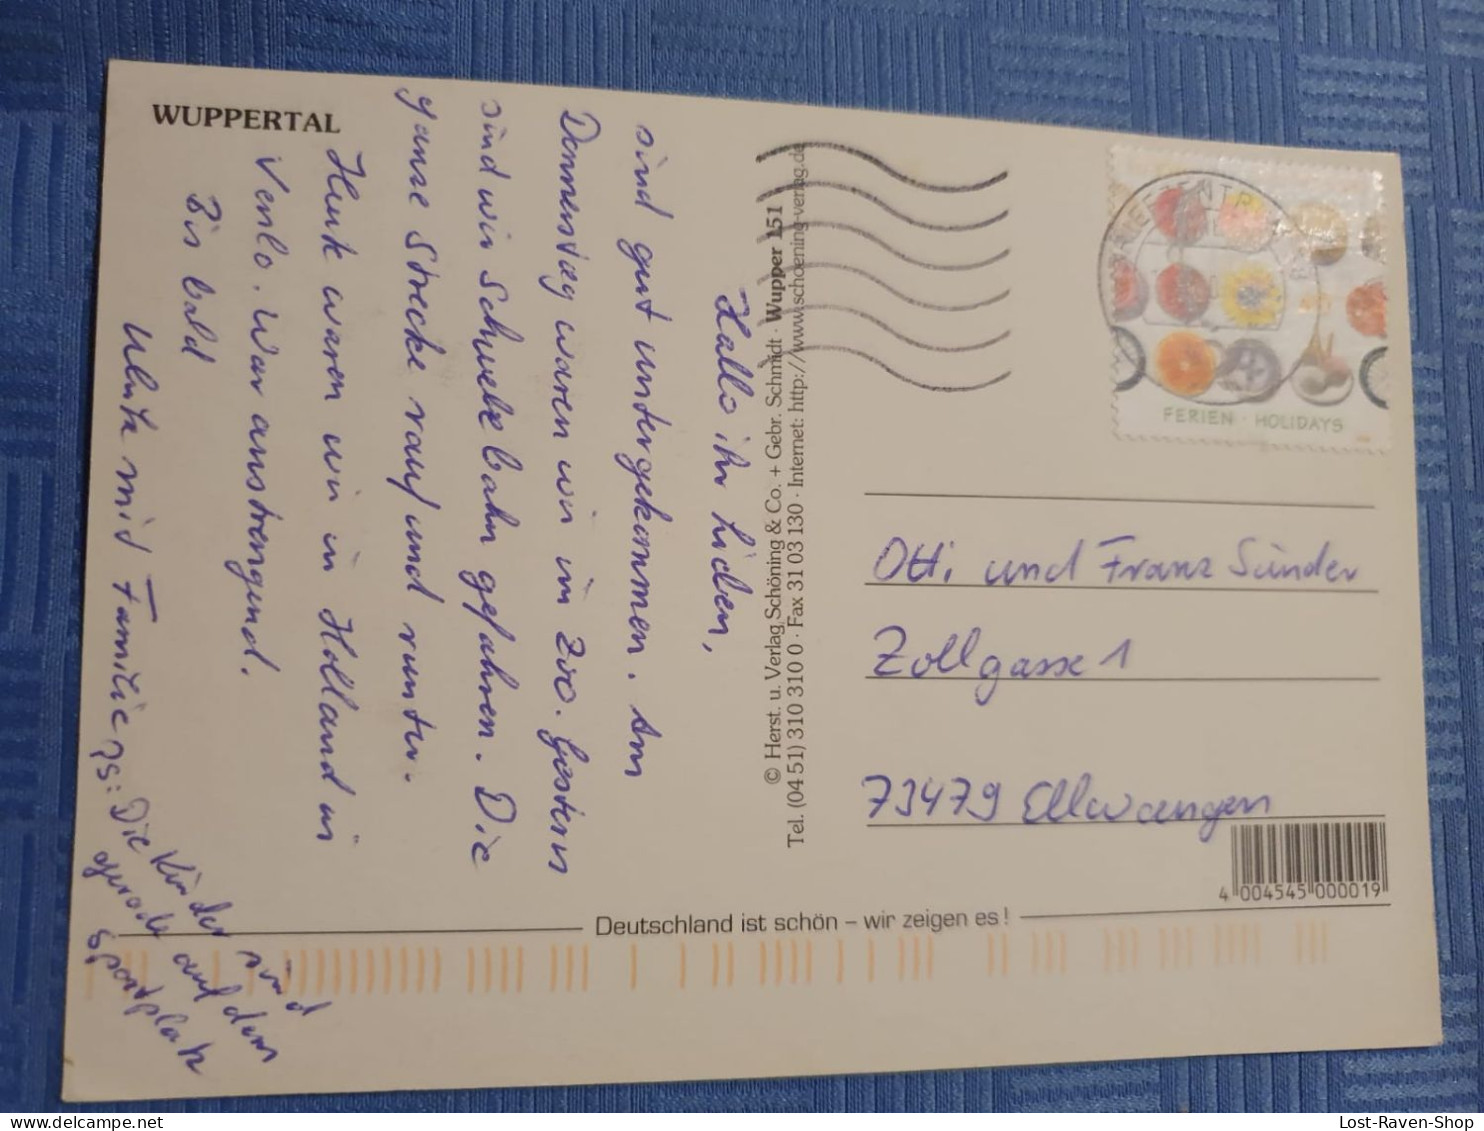 WUPPERTAL
Hallo ihr Lieben,
sind gut untergekommen. Am
Donnerstag waren wir im Zoo. Gestern
sind wir Schwebebahn gefahren. Die
ganze Strecke rauf und runter.
Heute waren wir in Holland in
Venlo. War anstrengend.
Bis bald
mit Familie
PS: Die Kinder sind
gerade auf dem
Sportplatz
© Herst. u. Verlag Schöning & Co. + Gebr. Schmidt · Wupper 151
Tel. (04 51) 310 310 0 · Fax 31 03 130 · Internet: http://www.schoening-verlag.de
BRIEFZENTRUM
FERIEN · HOLIDAYS
Otti und Franz Sünder
Zollgasse 1
73479 Ellwangen
4 004545 000019
Deutschland ist schön – wir zeigen es!
Lost-Raven-Shop